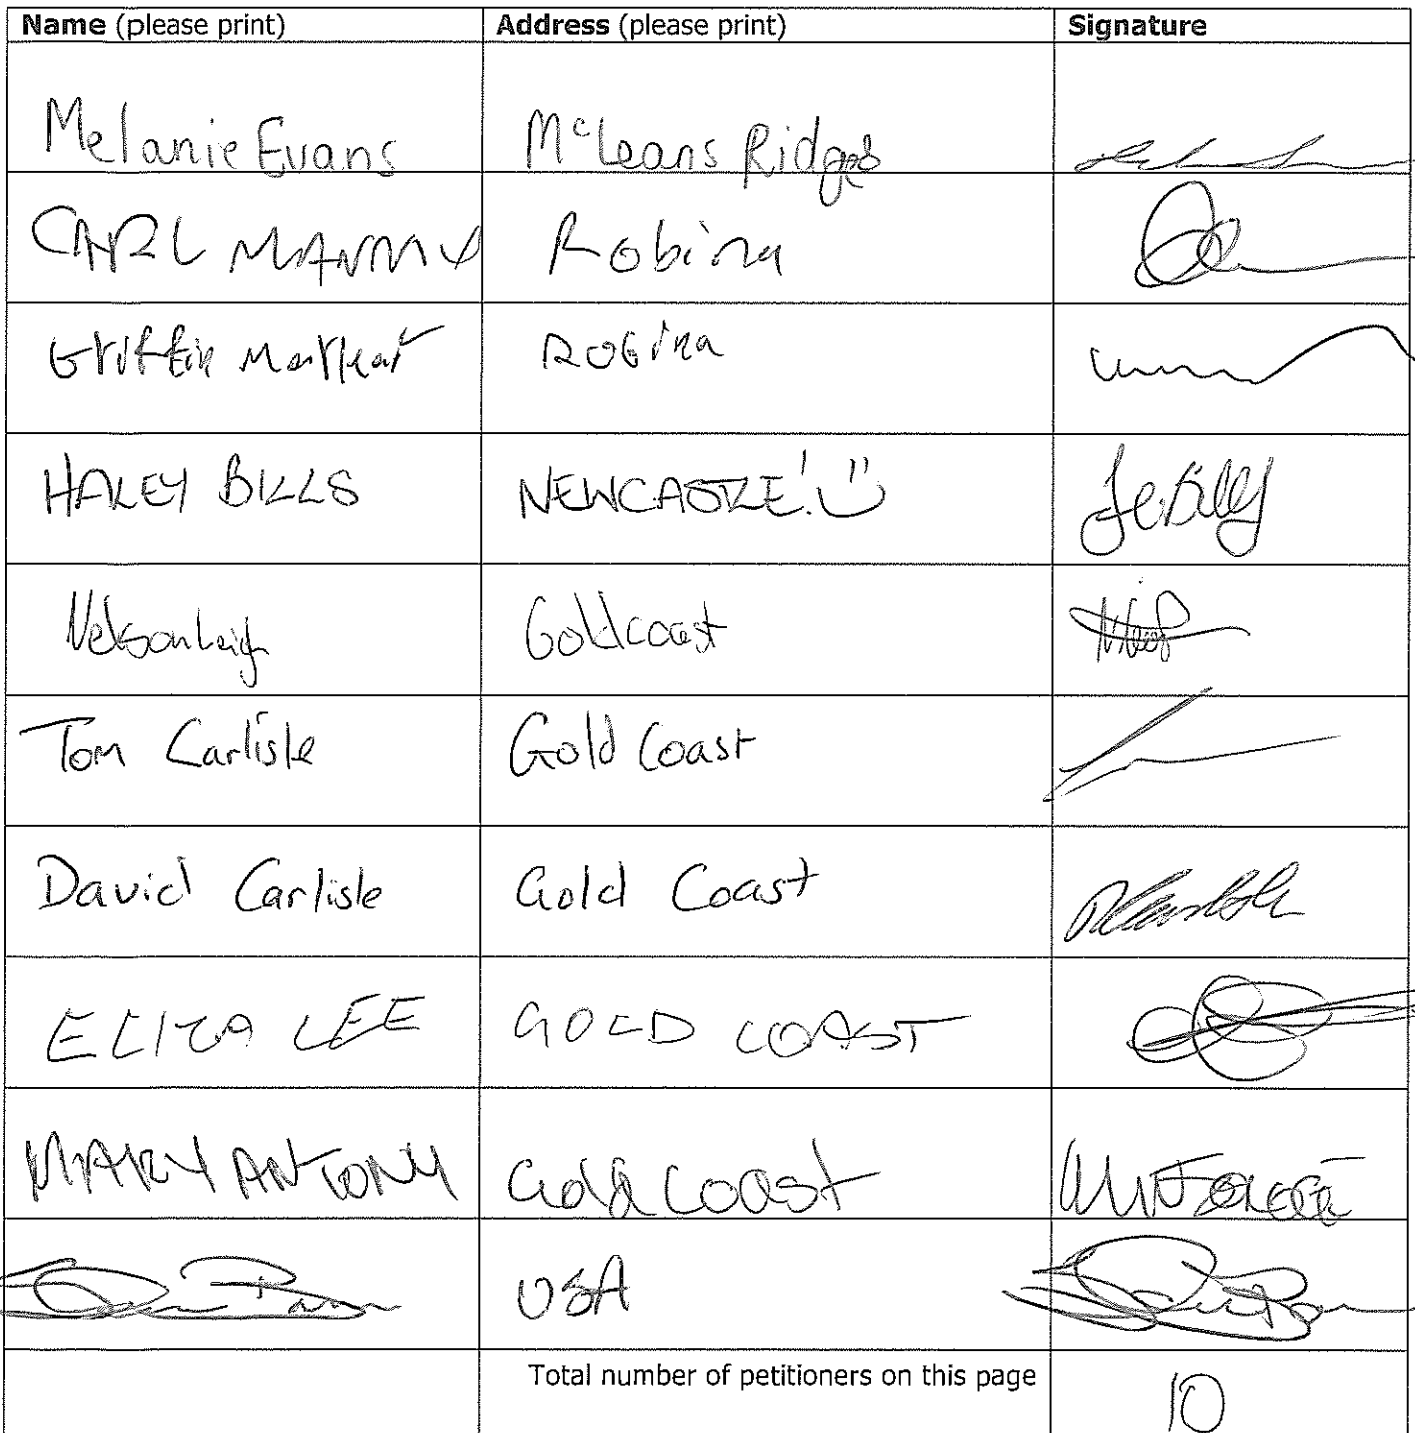 Name (please print) Address (please print) Signature
Melanie Evans McLeans Ridges
CARL Robina
Griffin Robina
HALEY BILLS NEWCASTLE! :)
Nelson Leigh Goldcoast
Tom Carlisle Gold Coast
David Carlisle Gold Coast
ELIZA LEE GOLD COAST
MARY ANTONY Gold Coast
USA
Total number of petitioners on this page 10